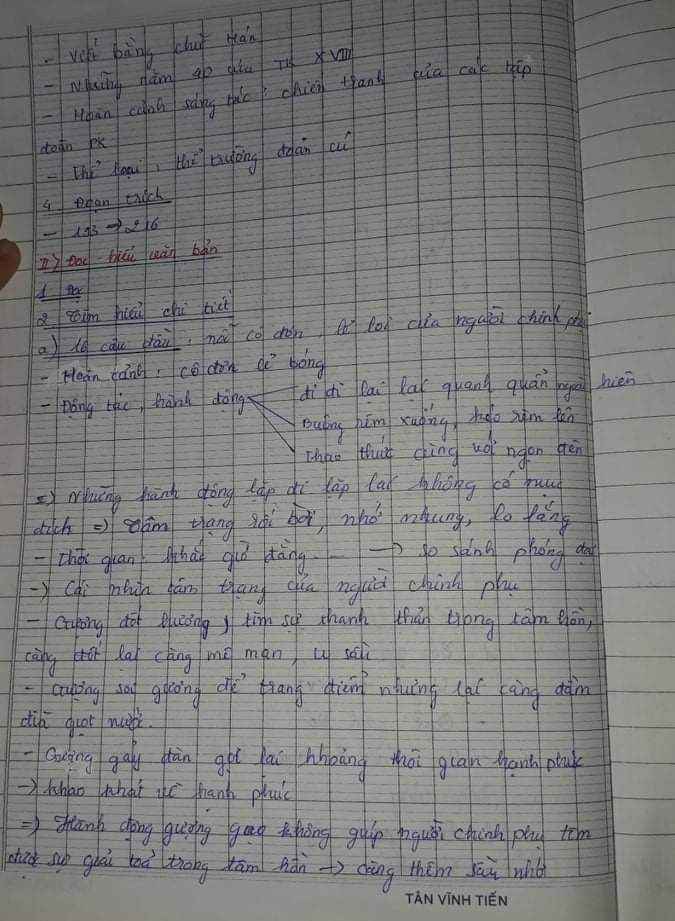 - Viết bằng chữ Hán
- Những năm 40 của TK XVIII
- Hoàn cảnh sáng tác: chiến tranh của các tập
đoàn PK
- Thể loại: thể trường đoản cú
4. Đoạn trích
- 193 → 216
II) Đọc hiểu văn bản
1 Đọc
2 Tìm hiểu chi tiết
a) 16 câu đầu: nỗi cô đơn, lẻ loi của người chinh phụ
- Hoàn cảnh: cô đơn lẻ bóng
- Động tác, hành động đi đi lại lại quanh quẩn ngoài hiên
buông rèm xuống, kéo rèm lên
Thao thức cùng với ngọn đèn
=> Những hành động lặp đi lặp lại không có mục
đích => Tâm trạng rối bời, nhớ nhung, lo lắng
- Thời gian: khắc giờ đằng... → so sánh phóng đại
→ Cái nhìn tâm trạng của người chinh phụ
- Gượng đốt hương, tìm sự thanh thản trong tâm hồn,
càng đốt lại càng mê man, u sầu
- Gượng soi gương để trang điểm nhưng lại càng đầm
đìa giọt nước.
- Gượng gảy đàn gợi lại khoảng thời gian hạnh phúc
→ khao khát về hạnh phúc
=> Hành động gượng gạo không giúp người chinh phụ tìm
được sự giải toả trong tâm hồn → càng thêm sầu nhớ
TÂN VĨNH TIẾN